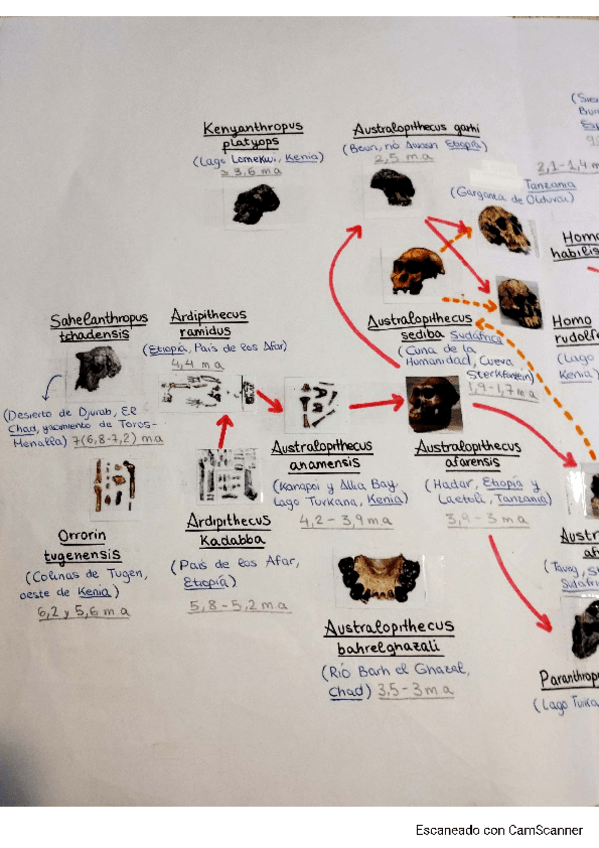 Kenyanthropus
platyops
(Lago Lomekwi, Kenia)
≥ 3,6 m.a
Australopithecus garhi
(Bouri, río Awash Etiopía)
2,5 m.a
(Sie
Bur
Esp
2,1-1,4 m
Tanzania
(Garganta de Olduvai)
Homo
habilis
Sahelanthropus
tchadensis
(Desierto de Djurab, El
Chad, yacimiento de Toros-
Menalla) 7(6,8-7,2) m.a
Ardipithecus
ramidus
(Etiopía, País de los Afar)
4,4 m.a
Australopithecus
sediba Sudáfrica
(Cuna de la
Humanidad, Cueva
Sterkfontein)
1,9-1,7 m.a
Homo
rudolfe
(Lago
Kenia)
Australopithecus
anamensis
(Kanapoi y Allia Bay.
Lago Turkana, Kenia)
4,2-3,9 m.a
Australopithecus
afarensis
(Hadar, Etiopía y
Laetoli, Tanzania)
3,9-3 m.a
Orrorin
tugenensis
(Colinas de Tugen,
oeste de Kenia)
6,2 y 5,6 m.a
Ardipithecus
Kadabba
(País de los Afar,
Etiopía)
5,8-5,2 m.a
Austr
af
(Taung, St
Sudáfri
Australopithecus
bahrelghazali
(Río Barh el Ghazal,
Chad) 3,5-3 m.a
Paranthrop
(Lago Turka
Escaneado con CamScanner